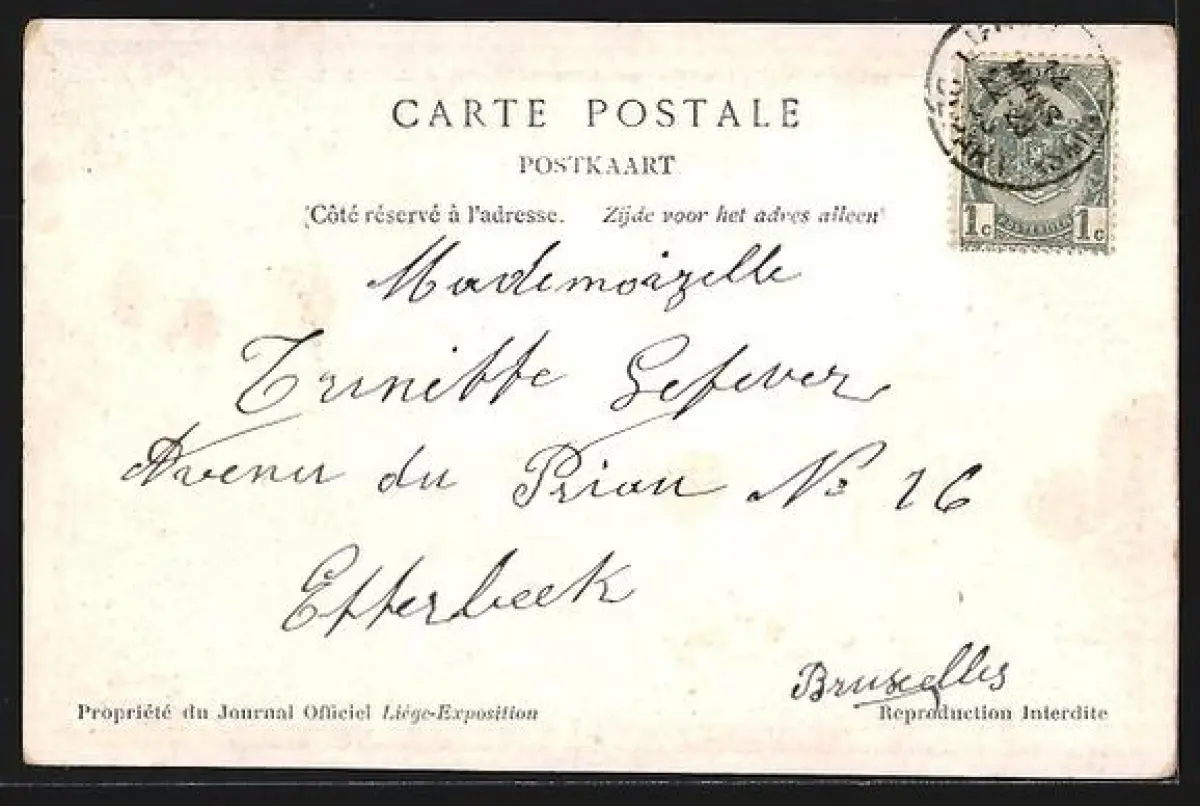 CARTE POSTALE
POSTKAART
Côté réservé à l'adresse. Zijde voor het adres alleen
1c 1c
Mademoizelle
Trinitte Lefever
Avenu du Prion No 26
Etterbeek
Bruxelles
Propriété du Journal Officiel Liége-Exposition
Reproduction Interdite